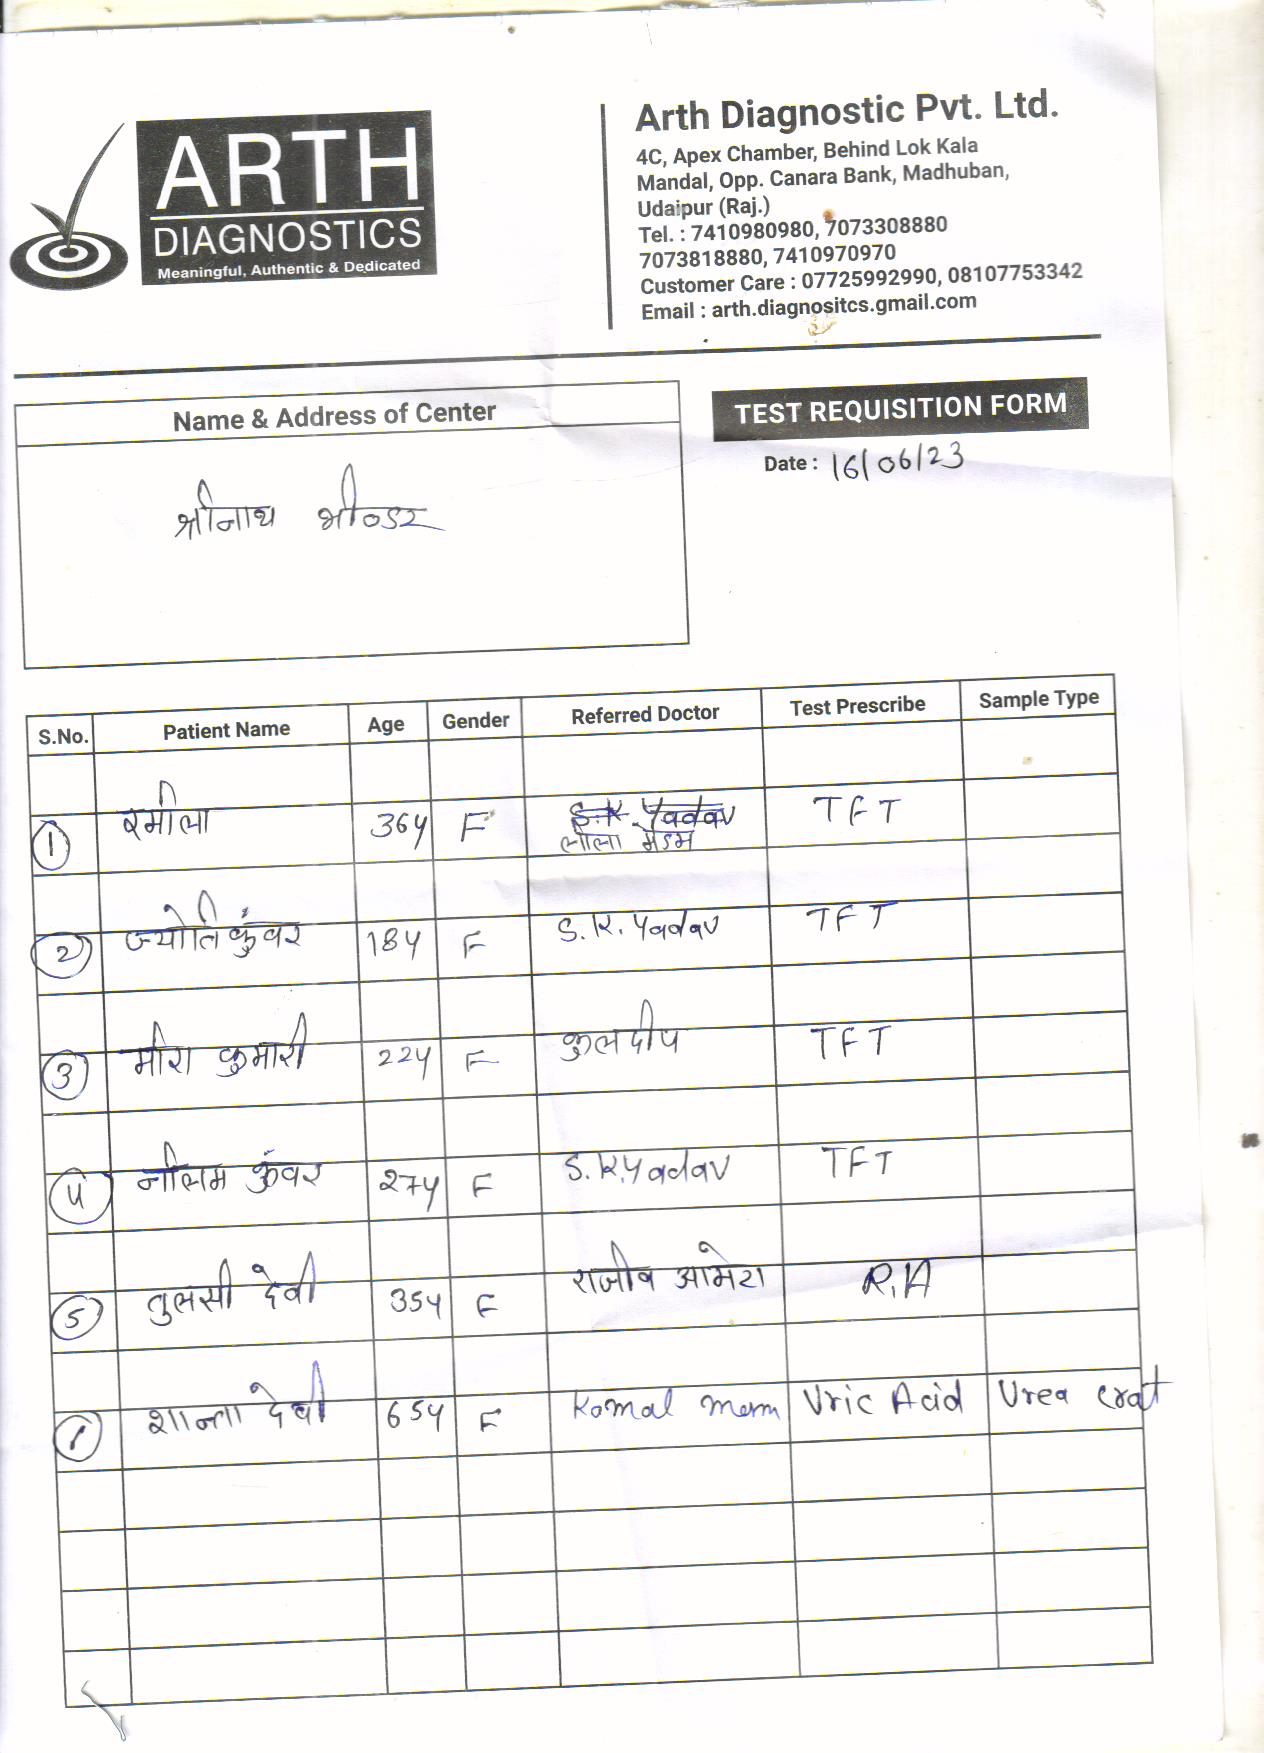 ARTH
DIAGNOSTICS
Meaningful, Authentic & Dedicated
Arth Diagnostic Pvt. Ltd.
4C, Apex Chamber, Behind Lok Kala
Mandal, Opp. Canara Bank, Madhuban,
Udaipur (Raj.)
Tel. : 7410980980, 7073308880
7073818880, 7410970970
Customer Care : 07725992990, 08107753342
Email : arth.diagnositcs.gmail.com
Name & Address of Center
श्रीनाथ भीण्डर
TEST REQUISITION FORM
Date : 16/06/23
S.No. Patient Name Age Gender Referred Doctor Test Prescribe Sample Type
1 रमीला 36y F S.K. Yadav TFT
लीला मेडम
2 ज्योति कुंवर 18y F S.K. Yadav TFT
3 मीरा कुमारी 22y F कुलदीप TFT
4 नीलम कुंवर 27y F S.K. Yadav TFT
5 तुलसी देवी 35y F राजीव आमेटा R.A
शान्ता देवी 65y F Komal mem Uric Acid Urea creat